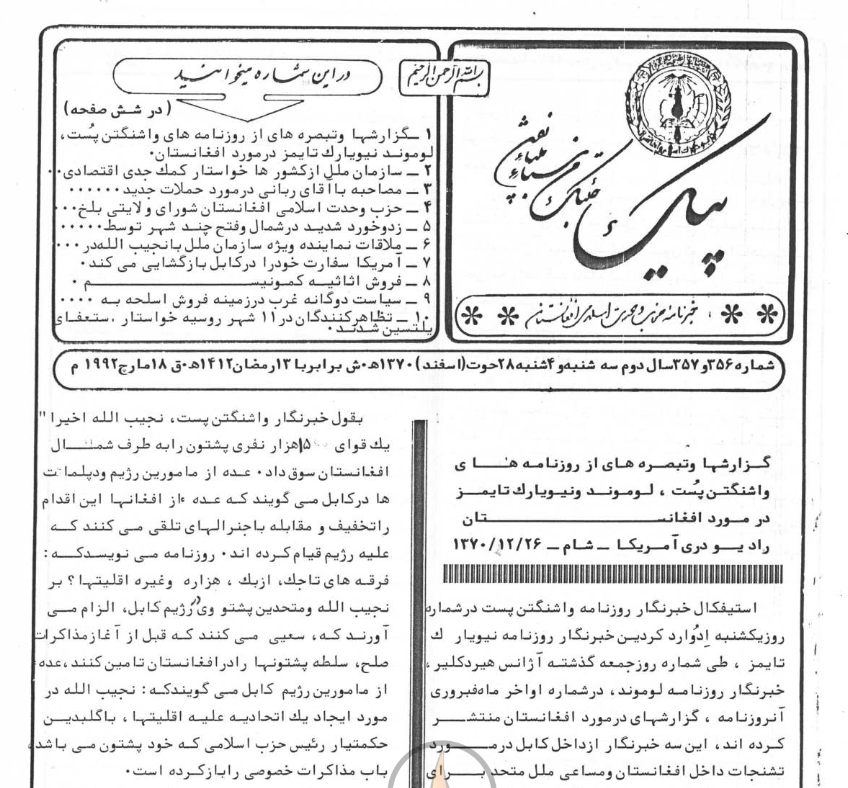 بسم الله الرحمن الرحیم
پیک
خبرنامه حزب وحدت اسلامی افغانستان
در این شماره میخوانید
(در شش صفحه)
۱ ــ گزارشها وتبصره های از روزنامه های واشنگتن پُست،
لوموند نیویارك تایمز درمورد افغانستان۰
۲ ــ سازمان ملل ازکشور ها خواستار کمك جدی اقتصادی۰۰
۳ ــ مصاحبه باآقای ربانی درمورد حملات جدید۰۰۰۰۰۰
۴ ــ حزب وحدت اسلامی افغانستان شورای ولایتی بلخ۰۰۰
۵ ــ زدوخورد شدید درشمال وفتح چند شهر توسط۰۰۰۰۰
۶ ــ ملاقات نماینده ویژه سازمان ملل بانجیب اللهدر۰۰۰
۷ ــ آمریکا سفارت خودرا درکابل بازگشایی می کند۰
۸ ــ فروش اثاثیه کمونیســـم ۰
۹ ــ سیاست دوگانه غرب درزمینه فروش اسلحه به ۰۰۰۰
۱۰ ــ تظاهرکنندگان در۱۱ شهر روسیه خواستار ،ستعفای
یلتسین شدند۰
شماره۳۵۶و۳۵۷سال دوم سه شنبهو۴شنبه۲۸حوت(اسفند)۱۳۷۰ه‍۰ش برابربا۱۳رمضان۱۴۱۲ه‍۰ق ۱۸مارچ۱۹۹۲ م
گـزارشها وتبصـره هـای از روزنـامه هـــا ی
واشنگتـن پُست ، لـومـونـد ونیـویارك تایمـــز
در مـورد افغانســــــتان
رادیـــو دری آمـریکـا ــ شـام ــ ۱۳۷۰/۱۲/۲۶
استیفکال خبرنگار روزنامه واشنگتن پست درشماره
روزیکشنبه اِدُوارد کردیـن خبرنگار روزنامه نیویار ك
تایمز ، طی شماره روزجمعه گذشته آژانس هیردکلیر،
خبرنگار روزنامـه لوموند، درشماره اواخر ماهفبروری
آنروزنامه ، گزارشهای درمورد افغانستان منتشـــر
کـرده اند، این سه خبرنگار ازداخل کابل درمـــورد
تشنجات داخل افغانستان ومساعی ملل متحد بـــرای
بقول خبرنگار واشنگتن پست، نجیب الله اخیرا "
یك قوای ۱۵هزار نفری پشتون رابه طرف شمـــال
افغانستان سوق داد۰ عده از مامورین رژیم ودپلمات
ها درکابل مـی گویند کـه عده از افغانهـا این اقدام
راتخفیف و مقابله باجنرالهای تلقی مـی کنند کــه
علیه رژیم قیام کـرده اند۰ روزنامه مـی نویسدکــه:
فرقـه های تاجك، ازبك ، هزاره وغیره اقلیتهـا؟ بر
نجیب الله ومتحدین پشتو وی رژیم کابل، الزام مــی
آورنـد کـه، سعیی مـی کنند کـه قبل از آغازمذاکرات
صلح، سلطه پشتونها رادرافغانستان تامین کنند،عده
از مامورین رژیم کابل مـی گویندکـه: نجیب الله در
مورد ایجاد یك اتحادیـه علیـه اقلیتهـا ، باگلبدیـن
حکمتیار رئیس حزب اسلامی کـه خود پشتون مـی باشد،
باب مذاکرات خصوصی رابازکـرده است۰